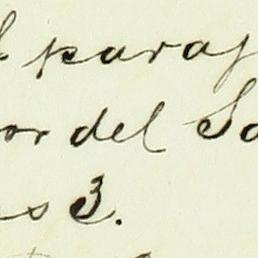 paraj
or del Sa
s 3.